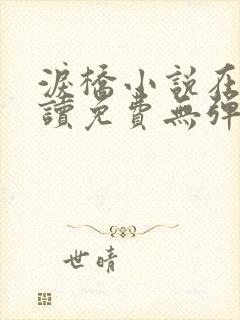 淚橋小說在
讀免費無彈
世晴